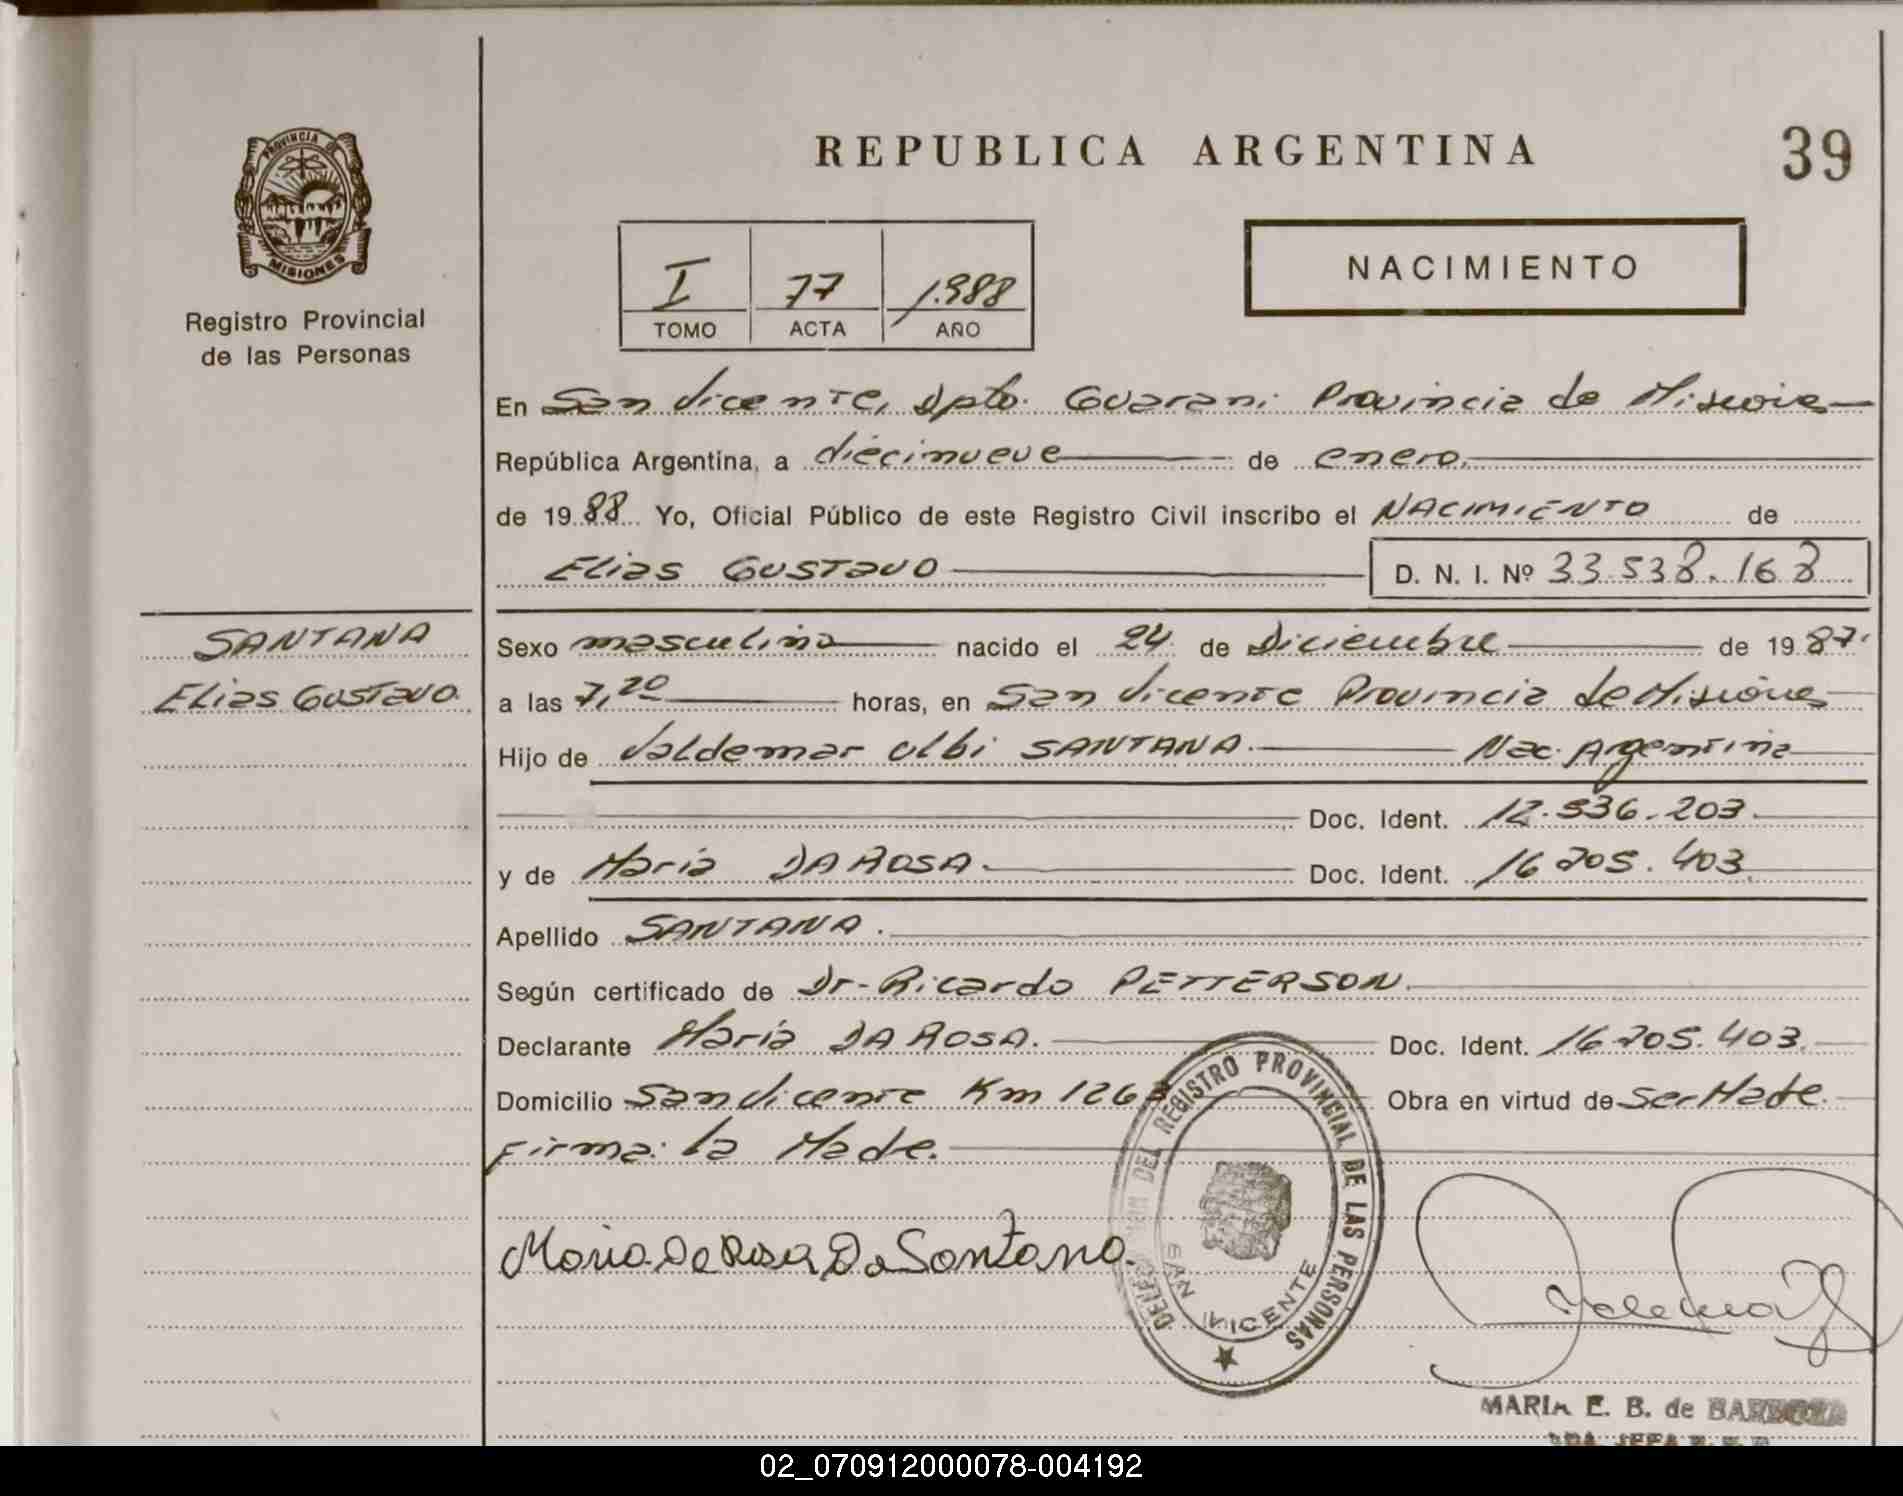 PROVINCIA DE
MISIONES
Registro Provincial
de las Personas
REPUBLICA ARGENTINA
39
I 77 1.988
TOMO ACTA AÑO
NACIMIENTO
En San Vicente, Dpto. Guarani Provincia de Misiones
República Argentina, a diecinueve de enero.
de 1988 Yo, Oficial Público de este Registro Civil inscribo el NACIMIENTO de
Elias GUSTAVO D. N. I. Nº 33.538.168
SANTANA
Elias GUSTAVO.
Sexo masculino nacido el 24 de Diciembre de 1987.
a las 7,20 horas, en San Vicente Provincia de Misiones
Hijo de Valdemar Olbi SANTANA. Nac. Argentina
Doc. Ident. 12.536.203.
y de Maria DA ROSA. Doc. Ident. 16.205.403.
Apellido SANTANA.
Según certificado de Dr. Ricardo PETTERSON.
Declarante Maria DA ROSA. Doc. Ident. 16.205.403.
Domicilio San Vicente Km 1263 Obra en virtud de Ser Made.
Firma: la Made.
Maria De Rosa Da Santana.
DEL REGISTRO PROVINCIAL DE LAS PERSONAS
SAN VICENTE
MARIA E. B. de BARBOZA
02_070912000078-004192